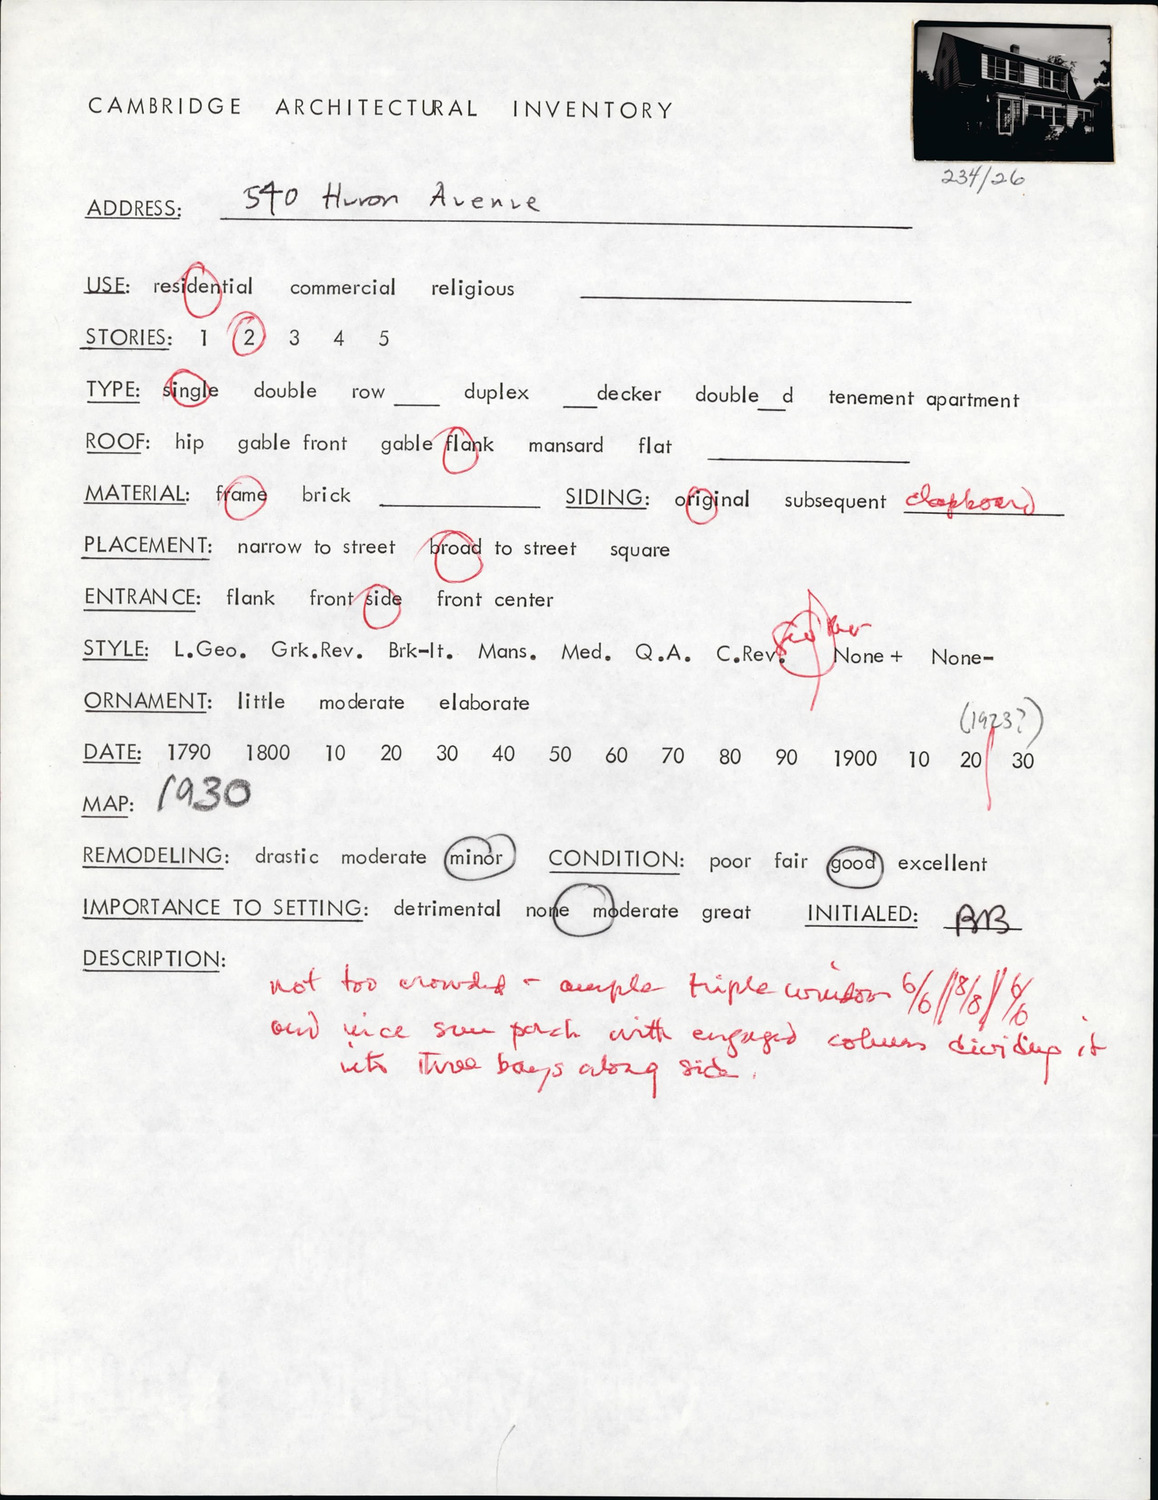 CAMBRIDGE ARCHITECTURAL INVENTORY
234/26
ADDRESS: 540 Huron Avenue
USE: residential commercial religious
STORIES: 1 2 3 4 5
TYPE: single double row ___ duplex ___decker double__d tenement apartment
ROOF: hip gable front gable flank mansard flat
MATERIAL: frame brick SIDING: original subsequent clapboard
PLACEMENT: narrow to street broad to street square
ENTRANCE: flank front side front center
STYLE: L.Geo. Grk.Rev. Brk-It. Mans. Med. Q.A. C.Rev. None + None-
ORNAMENT: little moderate elaborate
(1923?)
DATE: 1790 1800 10 20 30 40 50 60 70 80 90 1900 10 20 30
MAP: 1930
REMODELING: drastic moderate minor CONDITION: poor fair good excellent
IMPORTANCE TO SETTING: detrimental none moderate great INITIALED: BB
DESCRIPTION:
not too crowded - ample triple window 6/6 // 8/8 // 6/6
and nice sun porch with engaged columns dividing it
into three bays along side.